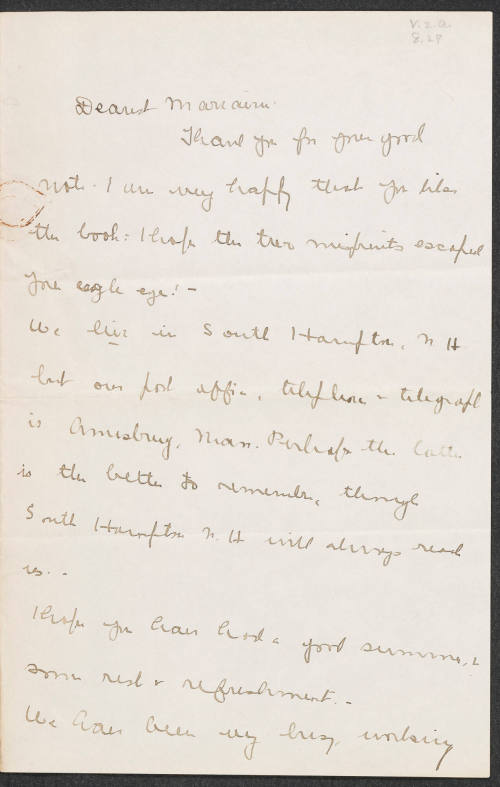 V.Z.A.
8.29
Dearest Mariann.
Thank you for your good
note. I am very happy that you like
the book: I hope the two misprints escaped
your eagle eye! -
We live in South Hampton, N H
but our post office, telephone & telegraph
is Amesbury, Mass. Perhaps the latter
is the better to remember, though
South Hampton N. H will always reach
us. -
I hope you have had a good summer, &
some rest & refreshment. -
We have been very busy, working